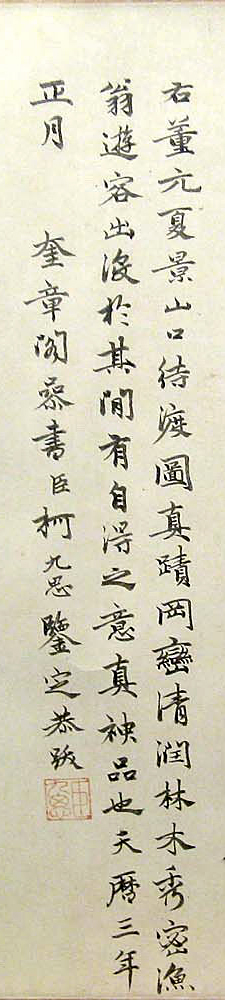 右董元夏景山口待渡圖真蹟岡巒清潤林木秀密漁
翁遊客出没於其間有自得之意真神品也天曆三年
正月 奎章閣參書臣柯九思鑒定恭跋